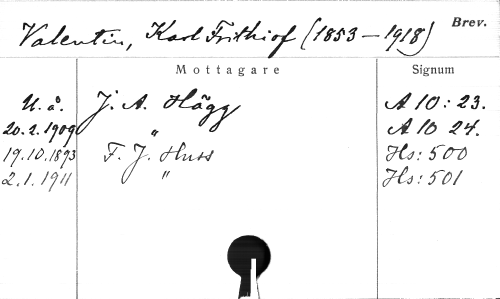 Valentin, Karl Frithiof (1853–1918) Brev.
Mottagare Signum
U. å. J. A. Hägg A 10 : 23.
20.2.1909 " A 10 24.
19.10.1893 F. J. Huss Hs: 500
2.1.1911 " Hs: 501